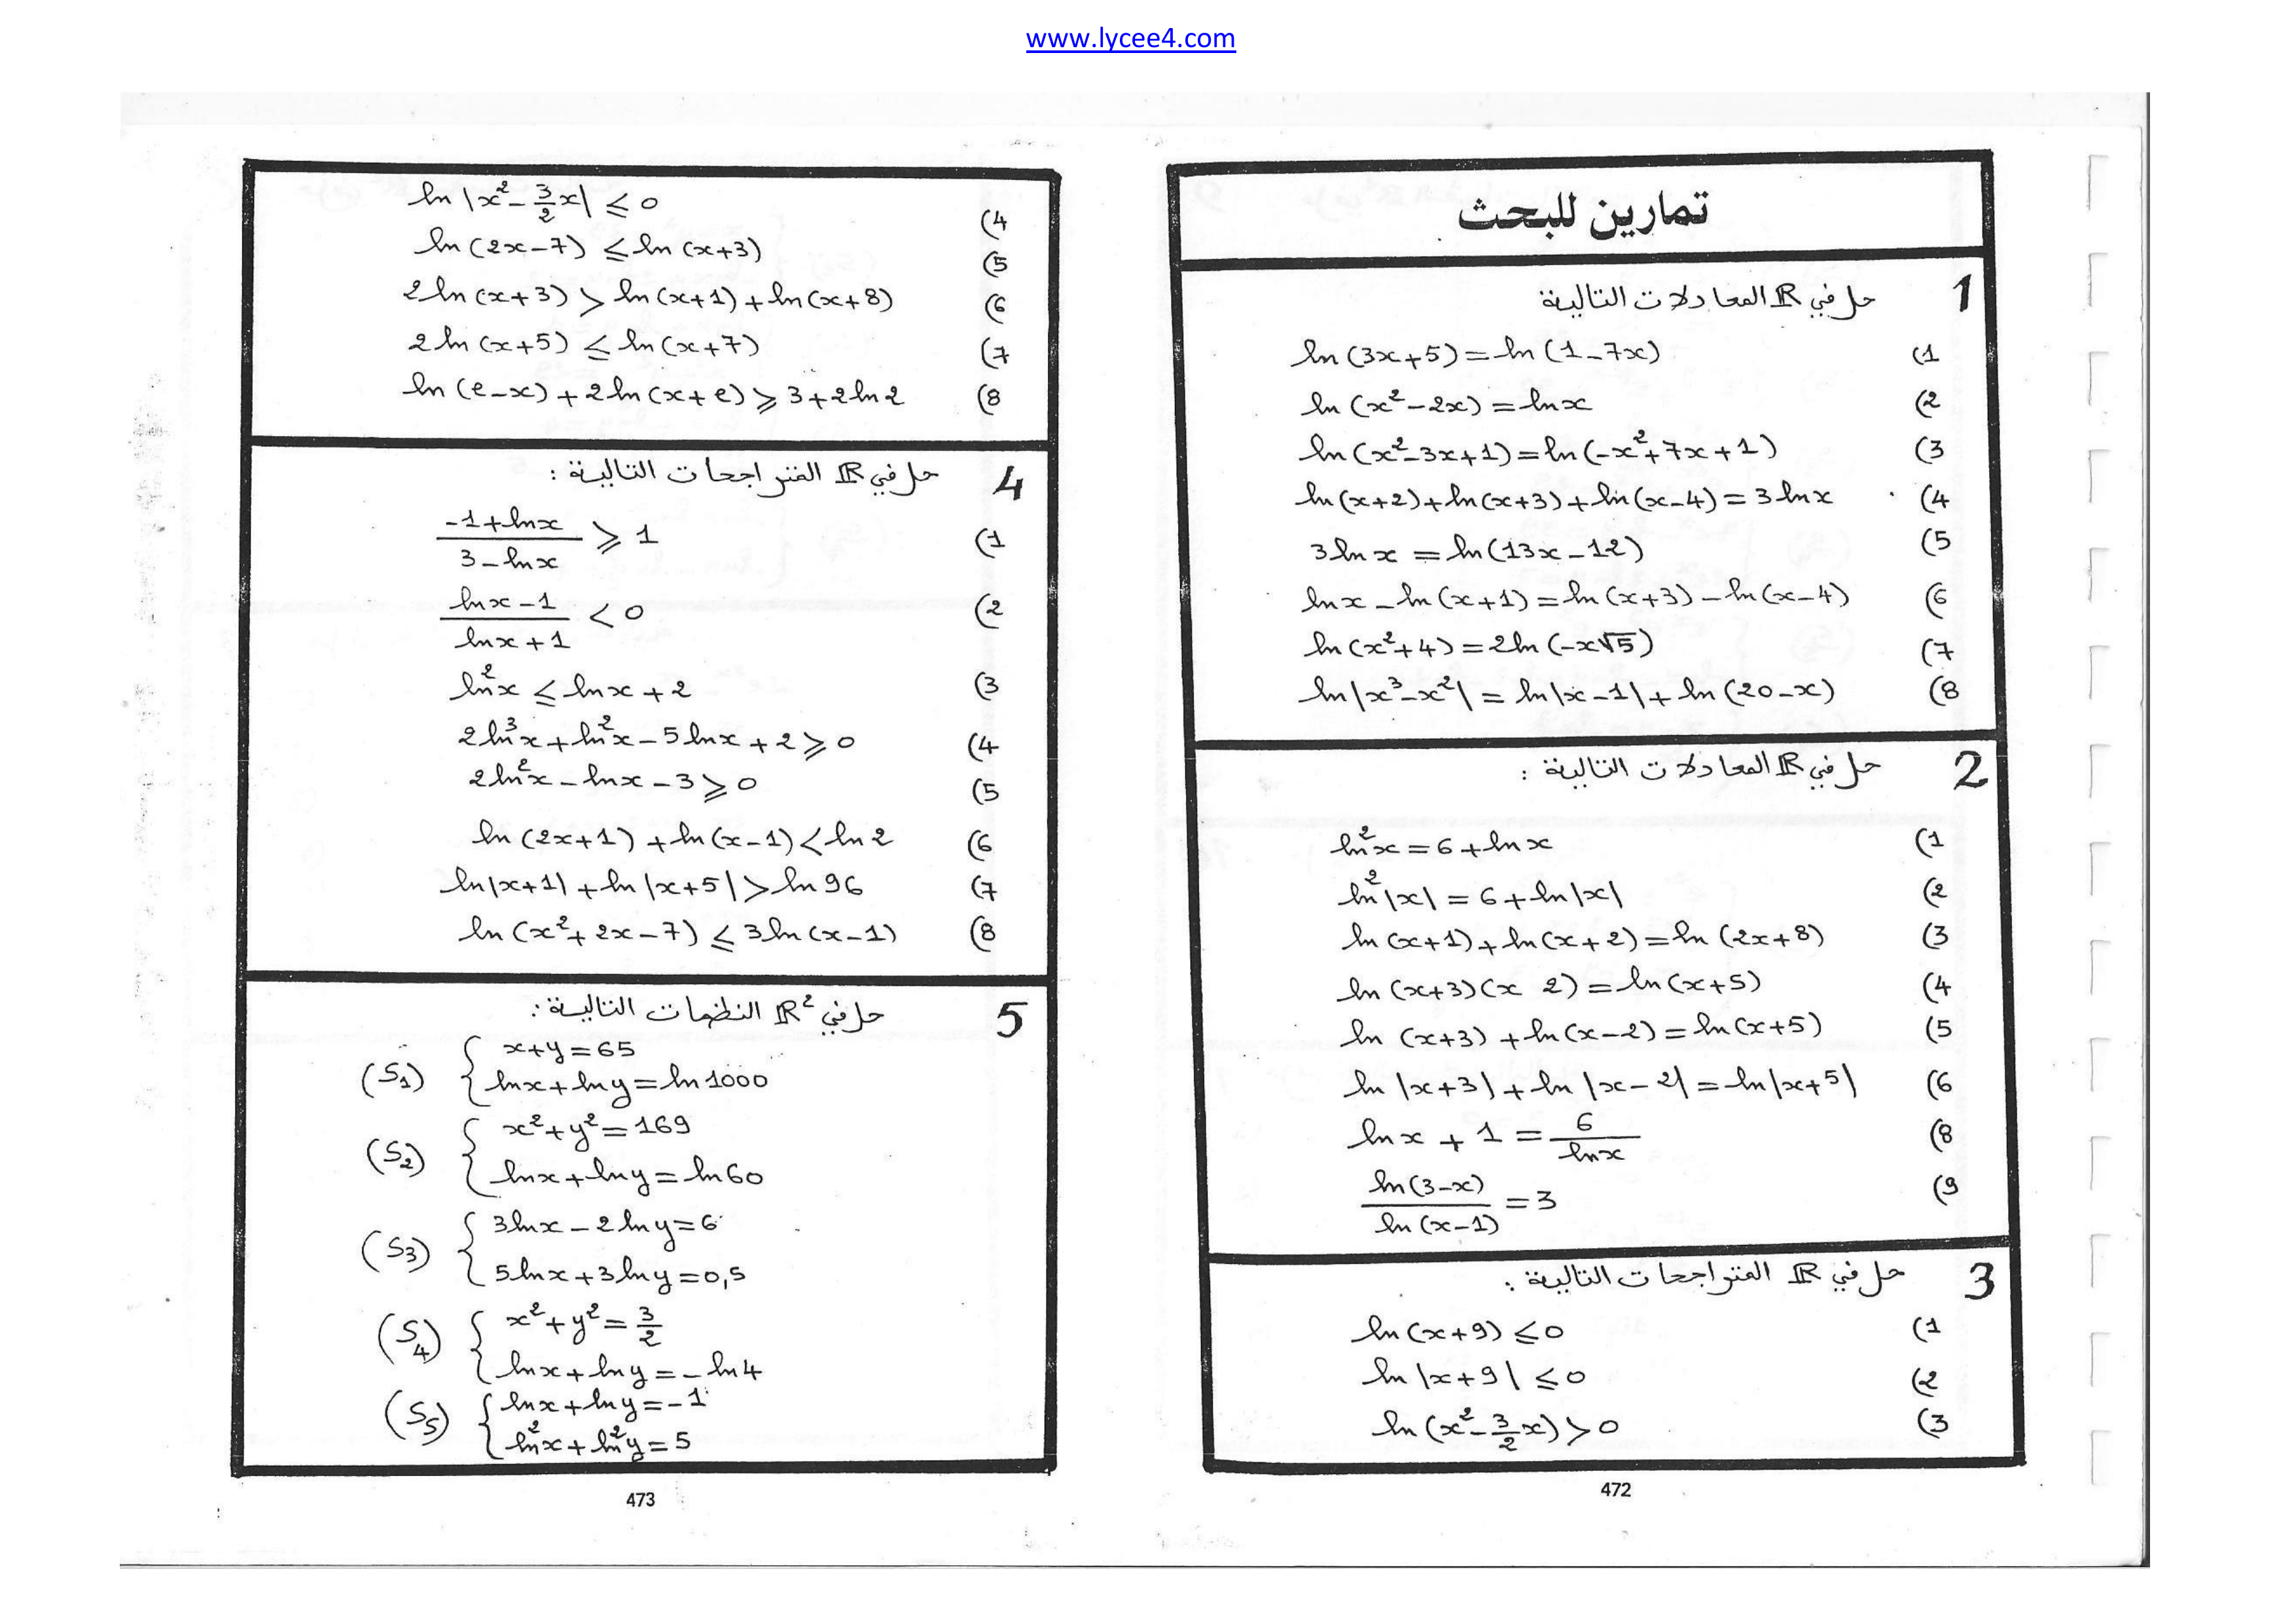 www.lycee4.com
تمارين للبحث
1 حل في ℝ المعادلات التالية
(1 ln(3x+5)=ln(1-7x)
(2 ln(x²-2x)=lnx
(3 ln(x²-3x+1)=ln(-x²+7x+1)
(4 ln(x+2)+ln(x+3)+ln(x-4)=3lnx
(5 3lnx=ln(13x-12)
(6 lnx-ln(x+1)=ln(x+3)-ln(x-4)
(7 ln(x²+4)=2ln(-x√5)
(8 ln|x³-x²|=ln|x-1|+ln(20-x)
2 حل في ℝ المعادلات التالية :
(1 ln²x=6+lnx
(2 ln²|x|=6+ln|x|
(3 ln(x+1)+ln(x+2)=ln(2x+8)
(4 ln(x+3)(x 2)=ln(x+5)
(5 ln(x+3)+ln(x-2)=ln(x+5)
(6 ln|x+3|+ln|x-2|=ln|x+5|
(8 lnx+1=6/lnx
(9 ln(3-x)/ln(x-1)=3
3 حل في ℝ المتراجحات التالية :
(1 ln(x+9)≤0
(2 ln|x+9|≤0
(3 ln(x²-3/2x)>0
472
(4 ln|x²-3/2x|≤0
(5 ln(2x-7)≤ln(x+3)
(6 2ln(x+3)>ln(x+1)+ln(x+8)
(7 2ln(x+5)≤ln(x+7)
(8 ln(e-x)+2ln(x+e)≥3+2ln2
4 حل في ℝ المتراجحات التالية :
(1 (-1+lnx)/(3-lnx)≥1
(2 (lnx-1)/(lnx+1)<0
(3 ln²x≤lnx+2
(4 2ln³x+ln²x-5lnx+2≥0
(5 2ln²x-lnx-3≥0
(6 ln(2x+1)+ln(x-1)<ln2
(7 ln|x+1|+ln|x+5|>ln96
(8 ln(x²+2x-7)≤3ln(x-1)
5 حل في ℝ² النظمات التالية :
(S₁) { x+y=65
lnx+lny=ln1000
(S₂) { x²+y²=169
lnx+lny=ln60
(S₃) { 3lnx-2lny=6
5lnx+3lny=0,5
(S₄) { x²+y²=3/2
lnx+lny=-ln4
(S₅) { lnx+lny=-1
ln²x+ln²y=5
473